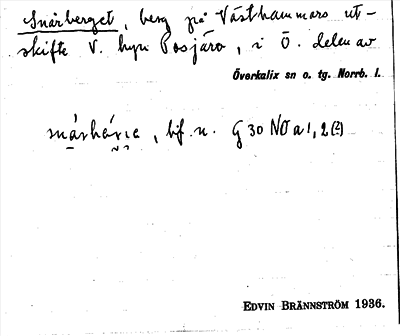 Snårberget, berg på Västhammars ut-
skifte V. hyn Posjärv, i Ö. delen av
Överkalix sn o. tg. Norrb. l.
bif. n. G 30 NO a 1, 2 (?)
EDVIN BRÄNNSTRÖM 1936.